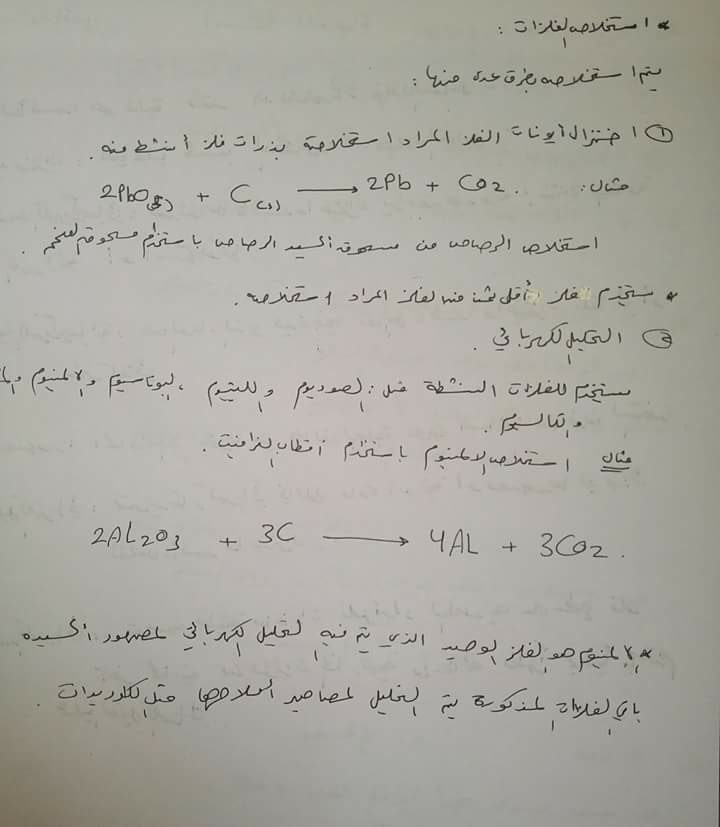 * استخلاص الفلزات :
يتم استخلاصه بطرق عدة منها :
① اختزال أيونات الفلز المراد استخلاصة بذرات فلز أنشط منه .
مثال : 2PbO(s) + C(s) ⟶ 2Pb + CO2 .
استخلاص الرصاص من مسحوق اكسيد الرصاص باستخدام مسحوق الفحم .
* يستخدم الفلز أقل ثمنا من الفلز المراد استخلاصه .
② التحليل الكهربائي .
يستخدم للفلزات النشطة مثل : الصوديوم والليثيوم ، البوتاسيوم والالمنيوم
والكالسيوم .
مثال استخلاص الالمنيوم باستخدام أقطاب الغرافيت .
2AL2O3 + 3C ⟶ 4AL + 3CO2 .
* الالمنيوم هو الفلز الوحيد الذي يتم فيه التحليل الكهربائي لمصهور اكسيده
باقي الفلزات المذكورة يتم التحليل لمصاهير املاحها مثل الكلوريدات .